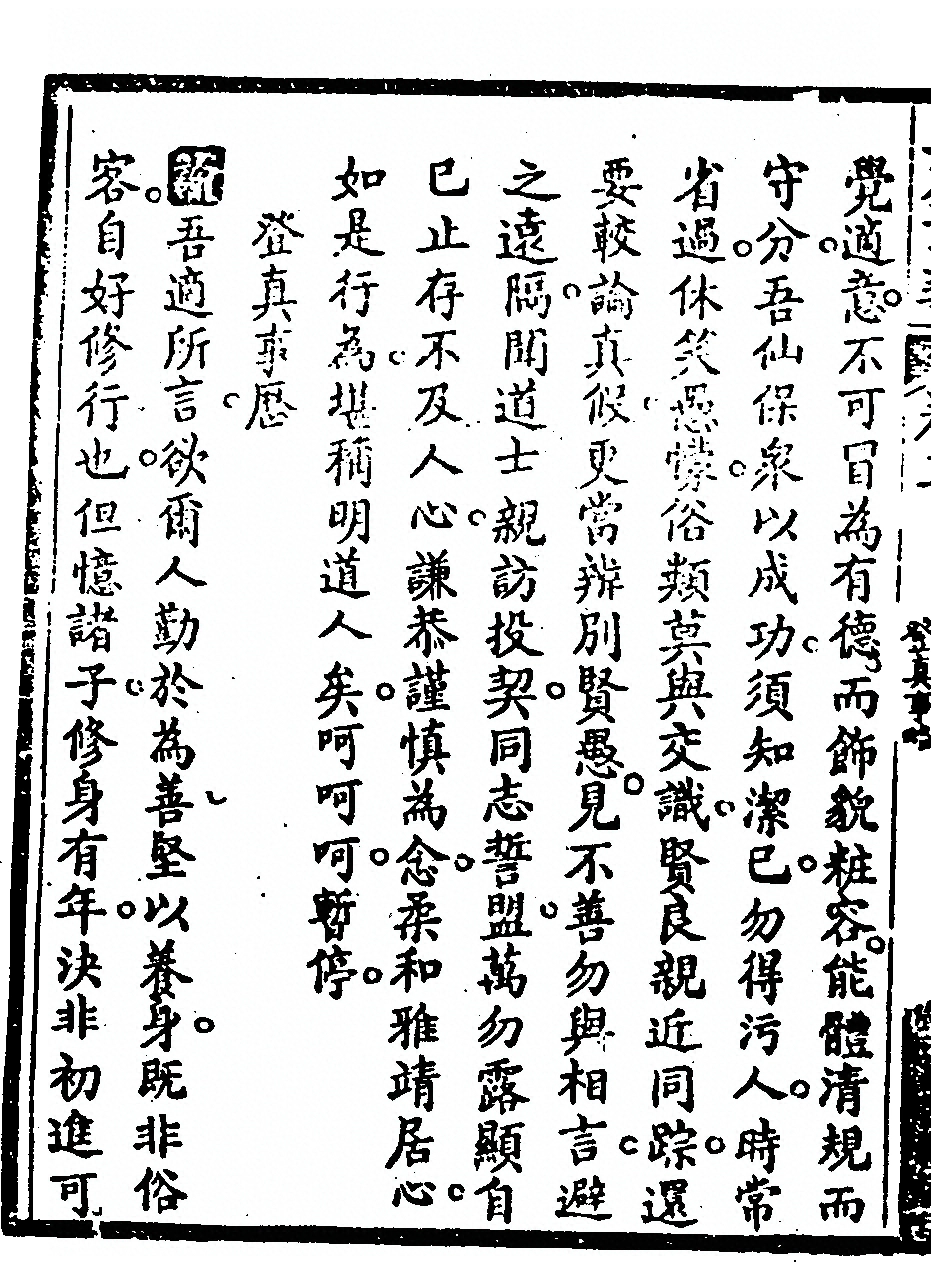 登真事略
覺適意。不可冒為有德。而飾貌粧容。能體清規而
守分。吾仙保眾以成功。須知潔己。勿得污人。時常
省過。休笑愚懞。俗類莫與交識。賢良親近同踪。還
要較論真假。更當辨別賢愚。見不善勿與相言。避
之遠隔。聞道士親訪投契。同志誓盟。萬勿露顯自
己。止存不及人心。謙恭謹慎為念。柔和雅靖居心。
如是行為。堪稱明道人矣。呵呵呵。暫停。
登真事歷
說吾適所言。欲爾人勤於為善。堅以養身。既非俗
客。自好修行也。但憶諸子。修身有年。決非初進可